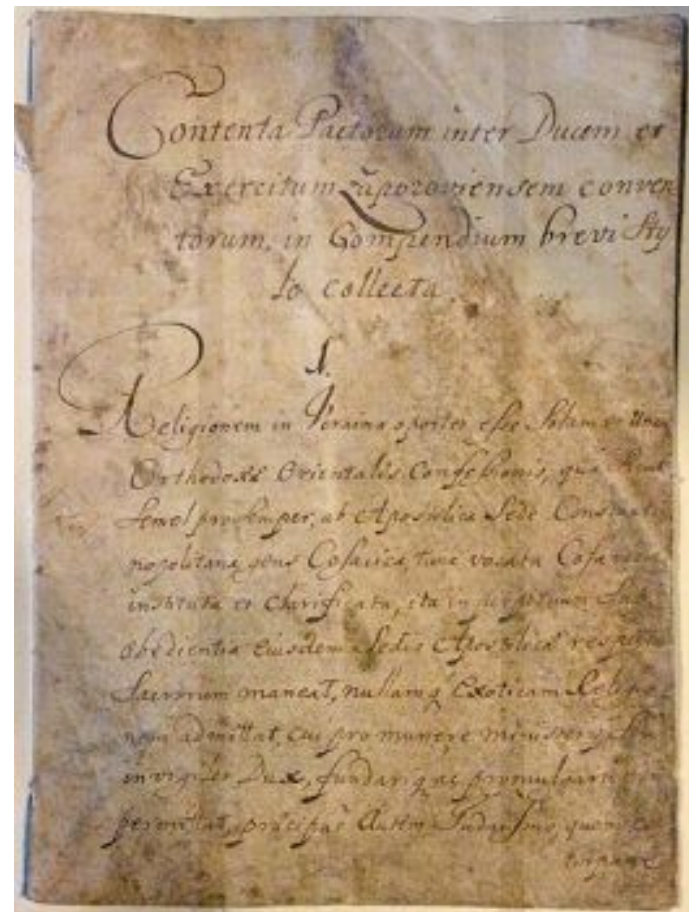 Contenta Pactorum inter Ducem et
Exercitum Zaporoviensem conven
torum, in Compendium brevi Sty
lo collecta.
1.
Religionem in Ucraina oportet esse Solam et Unam
Orthodoxæ Orientalis Confessionis, quâ
Semel pro Semper, ab Apostolica Sede Constanti
nopolitana, gens Cosacica, tunc vocata
instituta et clarificata, ita in perpetuum Sub
obedientia eiusdem Sedis Apostolicæ respectu
Sacrorum maneat, nullamq́ Exoticam Religio
nem admittat, cui pro munere
invigilet Dux, fundariq́ ac promulgari
permittat, præcipuè Autem Judaismo, quem